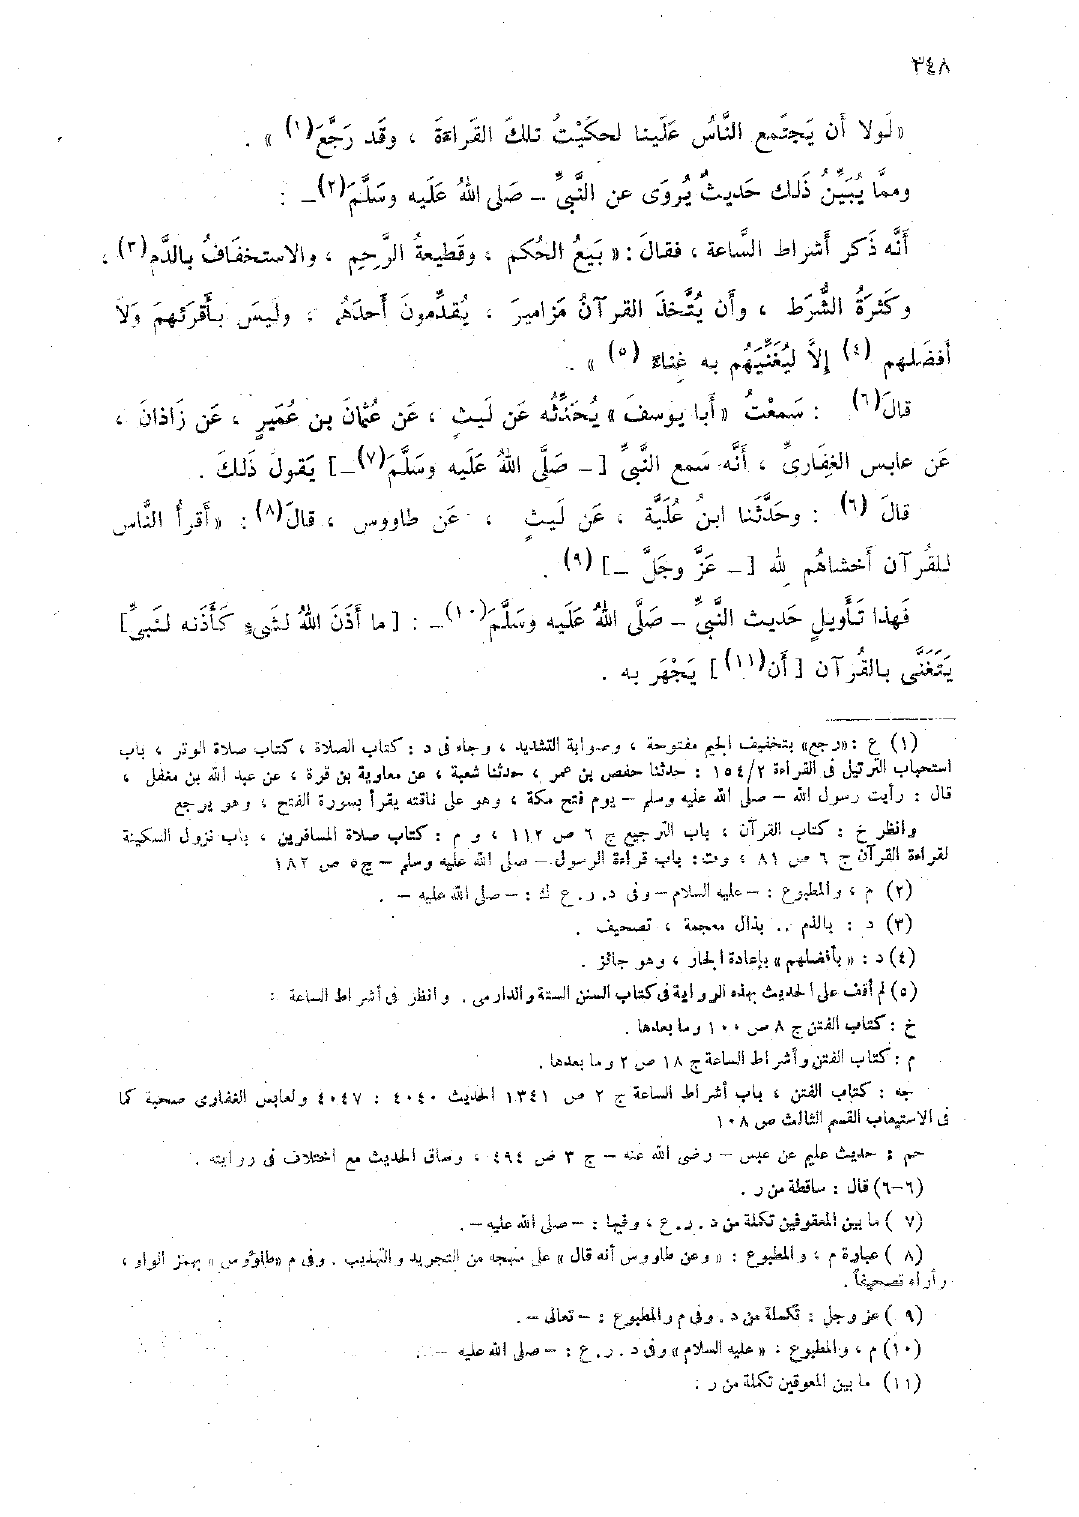 ٣٤٨
«لَولا أن يَجتَمع النَّاسُ عَلَينا لحكَيْتُ تلكَ القَراءةَ ، وقَد رَجَّعَ(١) » .
وممَّا يُبَيِّنُ ذَلك حَديثٌ يُروَى عن النَّبىِّ – صَلى اللهُ عَلَيه وسَلَّمَ(٢)– :
أَنَّه ذَكر أشراط السَّاعة ، فقالَ : « بَيعُ الحُكم ، وقَطيعةُ الرَّحِم ، والاستخفَافُ بالدَّم(٣) ،
وكَثرَةُ الشُّرَط ، وأن يُتَّخذَ القرآنُ مَزاميرَ ، يُقدِّمونَ أَحدَهُم ، وليسَ بأقرَئهم وَلَا
أفضَلهم (٤) إلاَّ ليُغَنِّيَهُم به غِناءً (٥) » .
قالَ(٦) : سَمعْتُ «أبا يوسفَ» يُحَدِّثُه عَن لَيثٍ ، عَن عُثمانَ بن عُمَيرٍ ، عَن زَاذانَ ،
عَن عابس الغِفَارىِّ ، أنَّه سَمع النبىَّ [– صَلَّى اللهُ عَلَيه وسَلَّمَ(٧)–] يَقولُ ذَلكَ .
قالَ (٦) : وحَدَّثَنا ابنُ عُلَيَّة ، عَن لَيثٍ ، عَن طاووس ، قالَ(٨) : «أَقرأُ النَّاس
للقُرآن أخشاهُم لله [– عَزَّ وجَلَّ –] (٩) .
فَهذا تَأويل حَديث النَّبىِّ – صَلَّى اللهُ عَلَيه وسَلَّمَ(١٠)– : [ما أَذَنَ اللهُ لشَىءٍ كَأَذَنه لنَبىٍّ]
يَتَغَنَّى بالقُرآن [أن(١١)] يَجْهَر به .
(١) ع : «رجع» بتخفيف الجيم مفتوحة ، وصوابة التشديد ، وجاء فى د : كتاب الصلاة ، كتاب صلاة الوتر ، باب
استحباب الترتيل فى القراءة ١٥٤/٢ : حدثنا حفص بن عمر ، حدثنا شعبة ، عن معاوية بن قرة ، عن عبد الله بن مغفل ،
قال : رأيت رسول الله – صلى الله عليه وسلم – يوم فتح مكة ، وهو على ناقته يقرأ بسورة الفتح ، وهو يرجع
وانظر خ : كتاب القرآن ، باب الترجيع ج ٦ ص ١١٢ ، و م : كتاب صلاة المسافرين ، باب نزول السكينة
لقراءة القرآن ج ٦ ص ٨١ ، وت : باب قراءة الرسول – صلى الله عليه وسلم – ج٥ ص ١٨٢
(٢) م ، والمطبوع : – عليه السلام – وفى د . ر . ع ك : – صلى الله عليه – .
(٣) د : بالذم .. بذال معجمة ، تصحيف .
(٤) د : « بأفضلهم » بإعادة الجار ، وهو جائز .
(٥) لم أقف على الحديث بهذه الرواية فى كتاب السنن الستة والدارمى . وانظر فى أشراط الساعة :
خ : كتاب الفتن ج ٨ ص ١٠٠ وما بعدها .
م : كتاب الفتن وأشراط الساعة ج ١٨ ص ٢ وما بعدها .
جه : كتاب الفتن ، باب أشراط الساعة ج ٢ ص ١٣٤١ الحديث ٤٠٤٠ : ٤٠٤٧ ولعابس الغفارى صحبة كما
فى الاستيعاب القسم الثالث ص ١٠٨
حم : حديث عليم عن عبس – رضى الله عنه – ج ٣ ص ٤٩٤ ، وساق الحديث مع اختلاف فى روايته .
(٦–٦) قال : ساقطة من ر .
(٧ ) ما بين المعقوفين تكملة من د . ر . ع ، وفيها : – صلى الله عليه –.
(٨ ) عبارة م ، والمطبوع : « وعن طاووس أنه قال » على منهجه من التجريد والتهذيب . وفى م «طاؤوس » بهمز الواو ،
وأراه تصحيفاً .
(٩ ) عز وجل : تكملة من د . وفى م والمطبوع : – تعالى –.
(١٠) م ، والمطبوع : « عليه السلام » وفى د . ر . ع : – صلى الله عليه –.
(١١) ما بين المعوقين تكملة من ر :